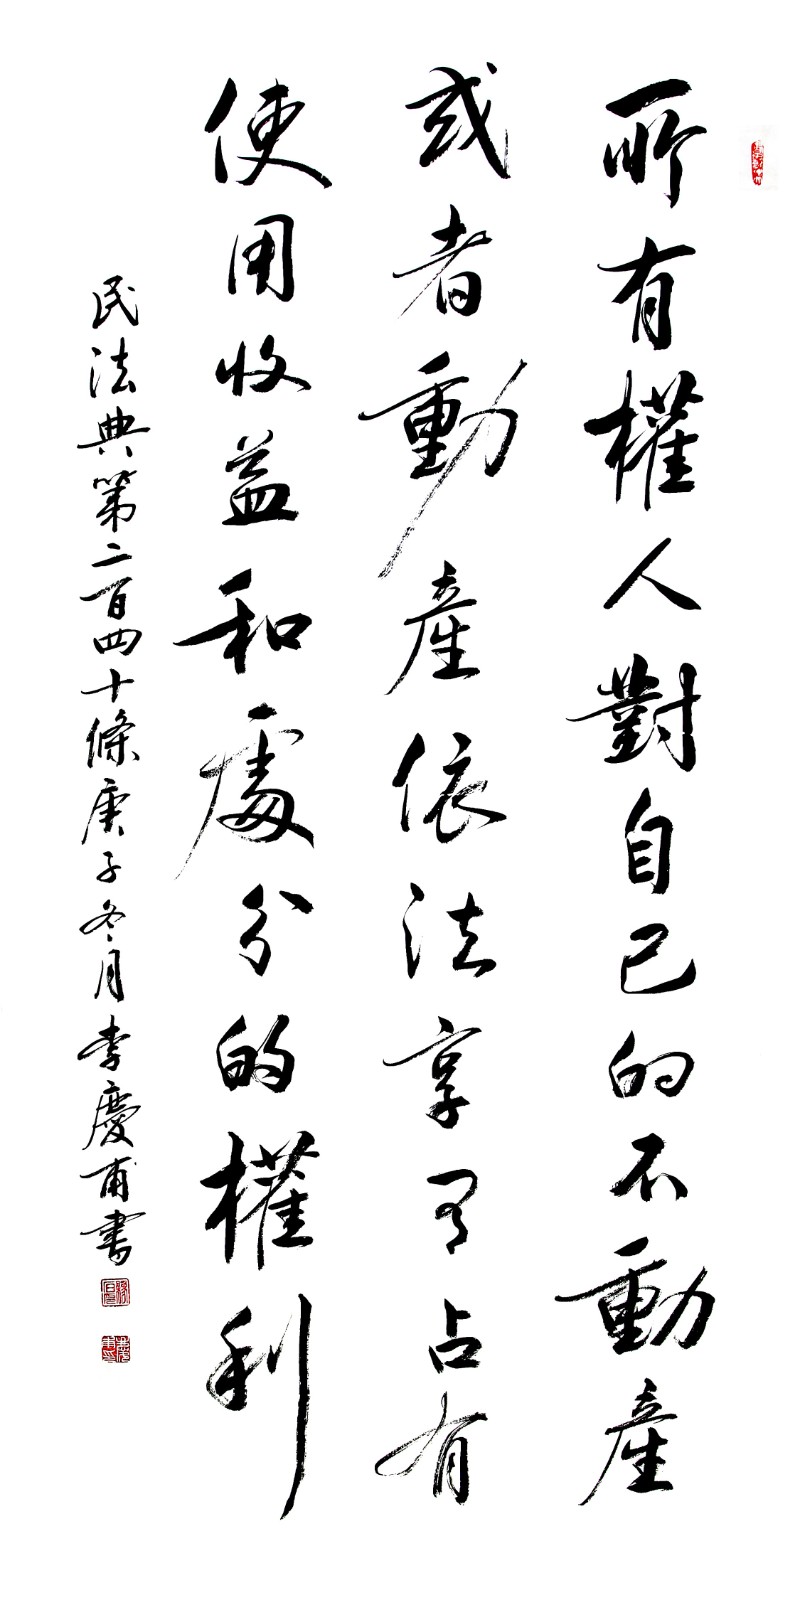 所有權人對自己的不動產
或者動產依法享有占有
使用收益和處分的權利
民法典第二百四十條庚子冬月李慶甫書